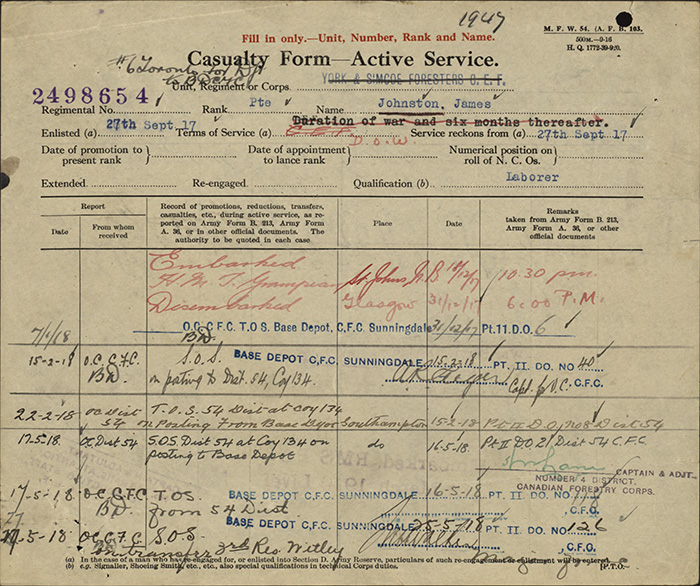 1947
M. F. W. 54. (A. F. B. 103.
500M.—9-16
H. Q. 1772-39-920.
Fill in only.—Unit, Number, Rank and Name.
Casualty Form—Active Service.
#6 Toronto
Unit, Regiment or Corps YORK & SIMCOE FORESTERS C.E.F.
2498654
Regimental No. Rank Pte Name Johnston, James
Duration of war and six months thereafter.
Enlisted (a) 27th Sept. 17 Terms of Service (a) Service reckons from (a) 27th Sept. 17
D.O.W
Date of promotion to present rank } Date of appointment to lance rank } Numerical position on roll of N. C. Os. }
Extended Re-engaged Qualification (b) Laborer
Report
Date
From whom received
Record of promotions, reductions, transfers, casualties, etc., during active service, as reported on Army Form B. 213, Army Form A. 36, or in other official documents. The authority to be quoted in each case
Place
Date
Remarks
taken from Army Form B. 213, Army Form A. 36, or other official documents
Embarked St Johns N.B 10.30 pm.
H M T Grampian
Disembarked Glasgow 31/12/17 6:00 P.M.
O.C. C.F.C. T.O.S. Base Depot, C.F.C. Sunningdale 31/12/17 Pt.11.D.O. 6
7/1/18 BD.
15-2-18 O.C. C.F.C. S.O.S. BASE DEPOT C.F.C. SUNNINGDALE 15-2-18 PT. II DO. NO 40
BD. on posting to Dist. 54, Coy 134. Capt. for O.C. C.F.C.
22-2-18 OC Dist 54 T.O.S. 54 Dist at Coy 134
on Posting From Base Depot Southampton 15-2-18 Pt II D.O. No 8 Dist 54
17-5-18. OC Dist 54 S.O.S. Dist 54 at Coy 134 on posting to Base Depot do 16-5-18. Pt II D.O. 21 Dist 54 C.F.C.
CAPTAIN & ADJT.
NUMBER 4 DISTRICT,
CANADIAN FORESTRY CORPS.
17-5-18 O.C. C.F.C. T.O.S. BASE DEPOT C.F.C. SUNNINGDALE 16-5-18 PT. II. DO. NO
BD. from 54 Dist
BASE DEPOT C.F.C. SUNNINGDALE 25-5-18 PT. II. DO. NO 126
-5-18 O.C. C.F.C. S.O.S.
on transfer 3rd Res. Witley
(a) In the case of a man who has re-engaged for, or enlisted into Section D. Army Reserve, particulars of such re-engagement or enlistment will be entered.
(b) e.g. Signaller, Shoeing Smith, etc., etc., also special qualifications in technical Corps duties. [P.T.O.